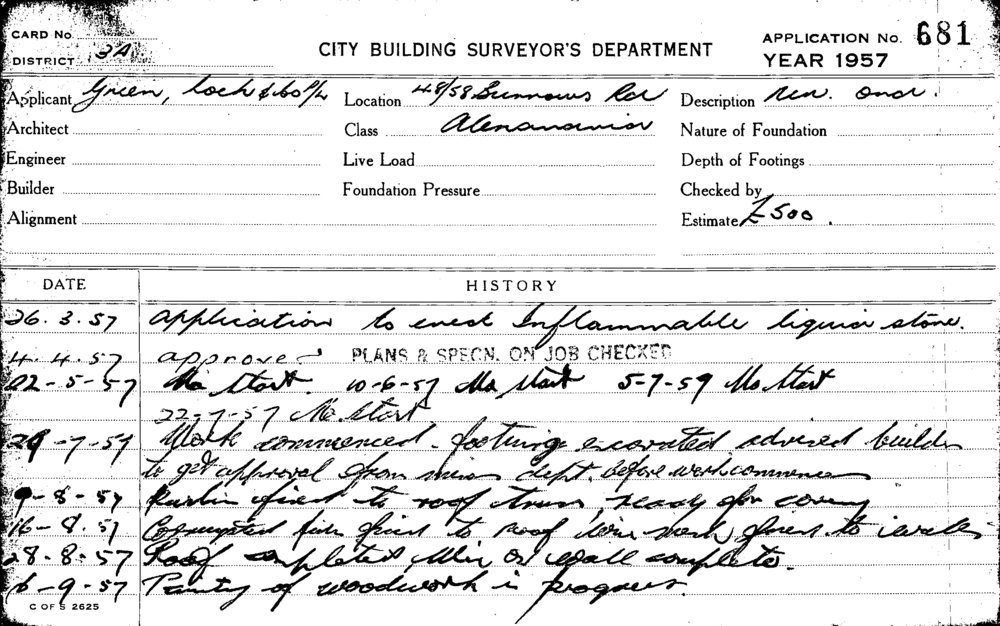 CARD No.
DISTRICT 3A
CITY BUILDING SURVEYOR'S DEPARTMENT
APPLICATION No. 681
YEAR 1957
Applicant Green, Loch & Co P/L Location 48/58 Burrows Rd Description New
Architect Class Alexandria Nature of Foundation
Engineer Live Load Depth of Footings
Builder Foundation Pressure Checked by
Alignment Estimate £500.
DATE HISTORY
26.3.57 Application to erect Inflammable liquid store.
4.4.57 approved PLANS & SPECN. ON JOB CHECKED
22-5-57 No Start. 10-6-57 No Start 5-7-57 No Start
22-7-57 No Start
29-7-57 Work commenced - footings excavated advised builder
to get approval from dept. before work commences
9-8-57 Purlin fixed to roof truss, ready for
16-8.57 fixed to roof wire mesh fixed to walls
28-8-57 Roof completed on wall complete.
6-9-57 Painting of woodwork in progress.
C OF S 2625